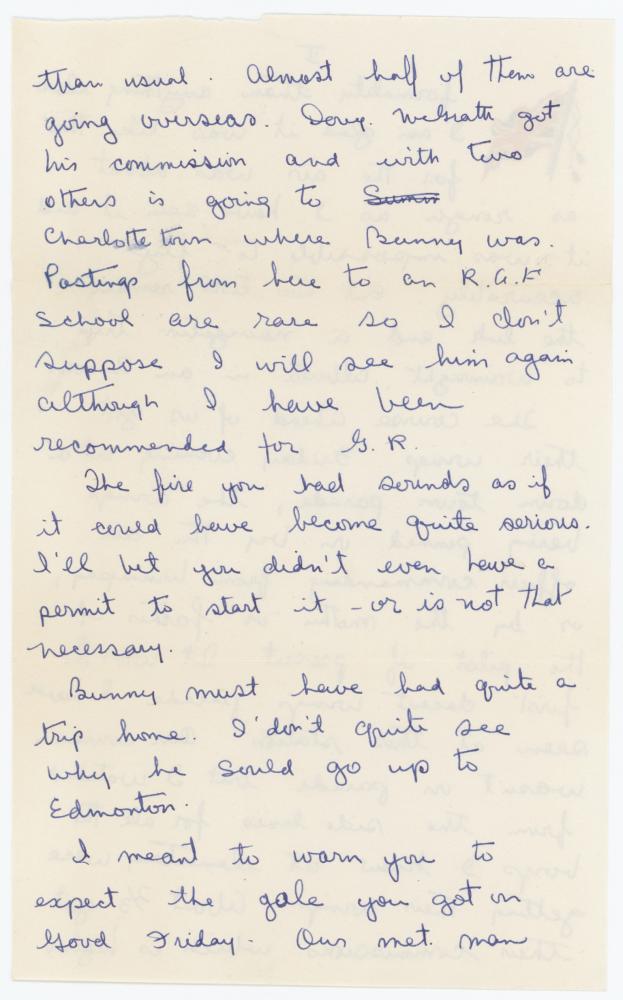 than usual. Almost half of them are
going overseas. Doug. McGrath got
his commission and with two
others is going to
Charlottetown where Bunny was.
Postings from here to an R.A.F
School are rare so I don't
suppose I will see him again
although I have been
recommended for G.R.
The fire you had sounds as if
it could have become quite serious.
I'll bet you didn't even have a
permit to start it - or is not that
necessary.
Bunny must have had quite a
trip home. I don't quite see
why he sould go up to
Edmonton.
I meant to warn you to
expect the gale you got on
Good Friday. Our met. man